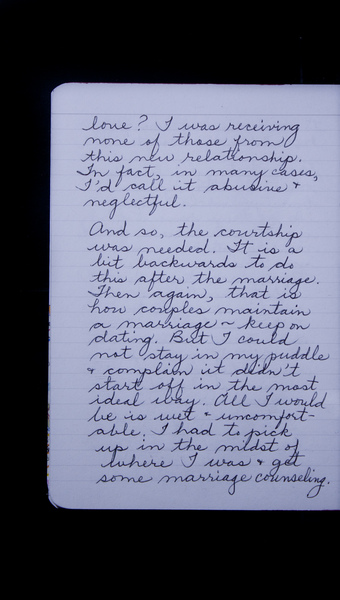 love? I was receiving
none of those from
this new relationship.
In fact, in many cases,
I'd call it abusive +
neglectful.
And so, the courtship
was needed. It is a
bit backwards to do
this after the marriage.
Then again, that is
how couples maintain
a marriage ~ keep on
dating. But I could
not stay in my puddle
+ complain it didn't
start off in the most
ideal way. All I would
be is wet + uncomfort-
able. I had to pick
up in the midst of
where I was + get
some marriage counseling.